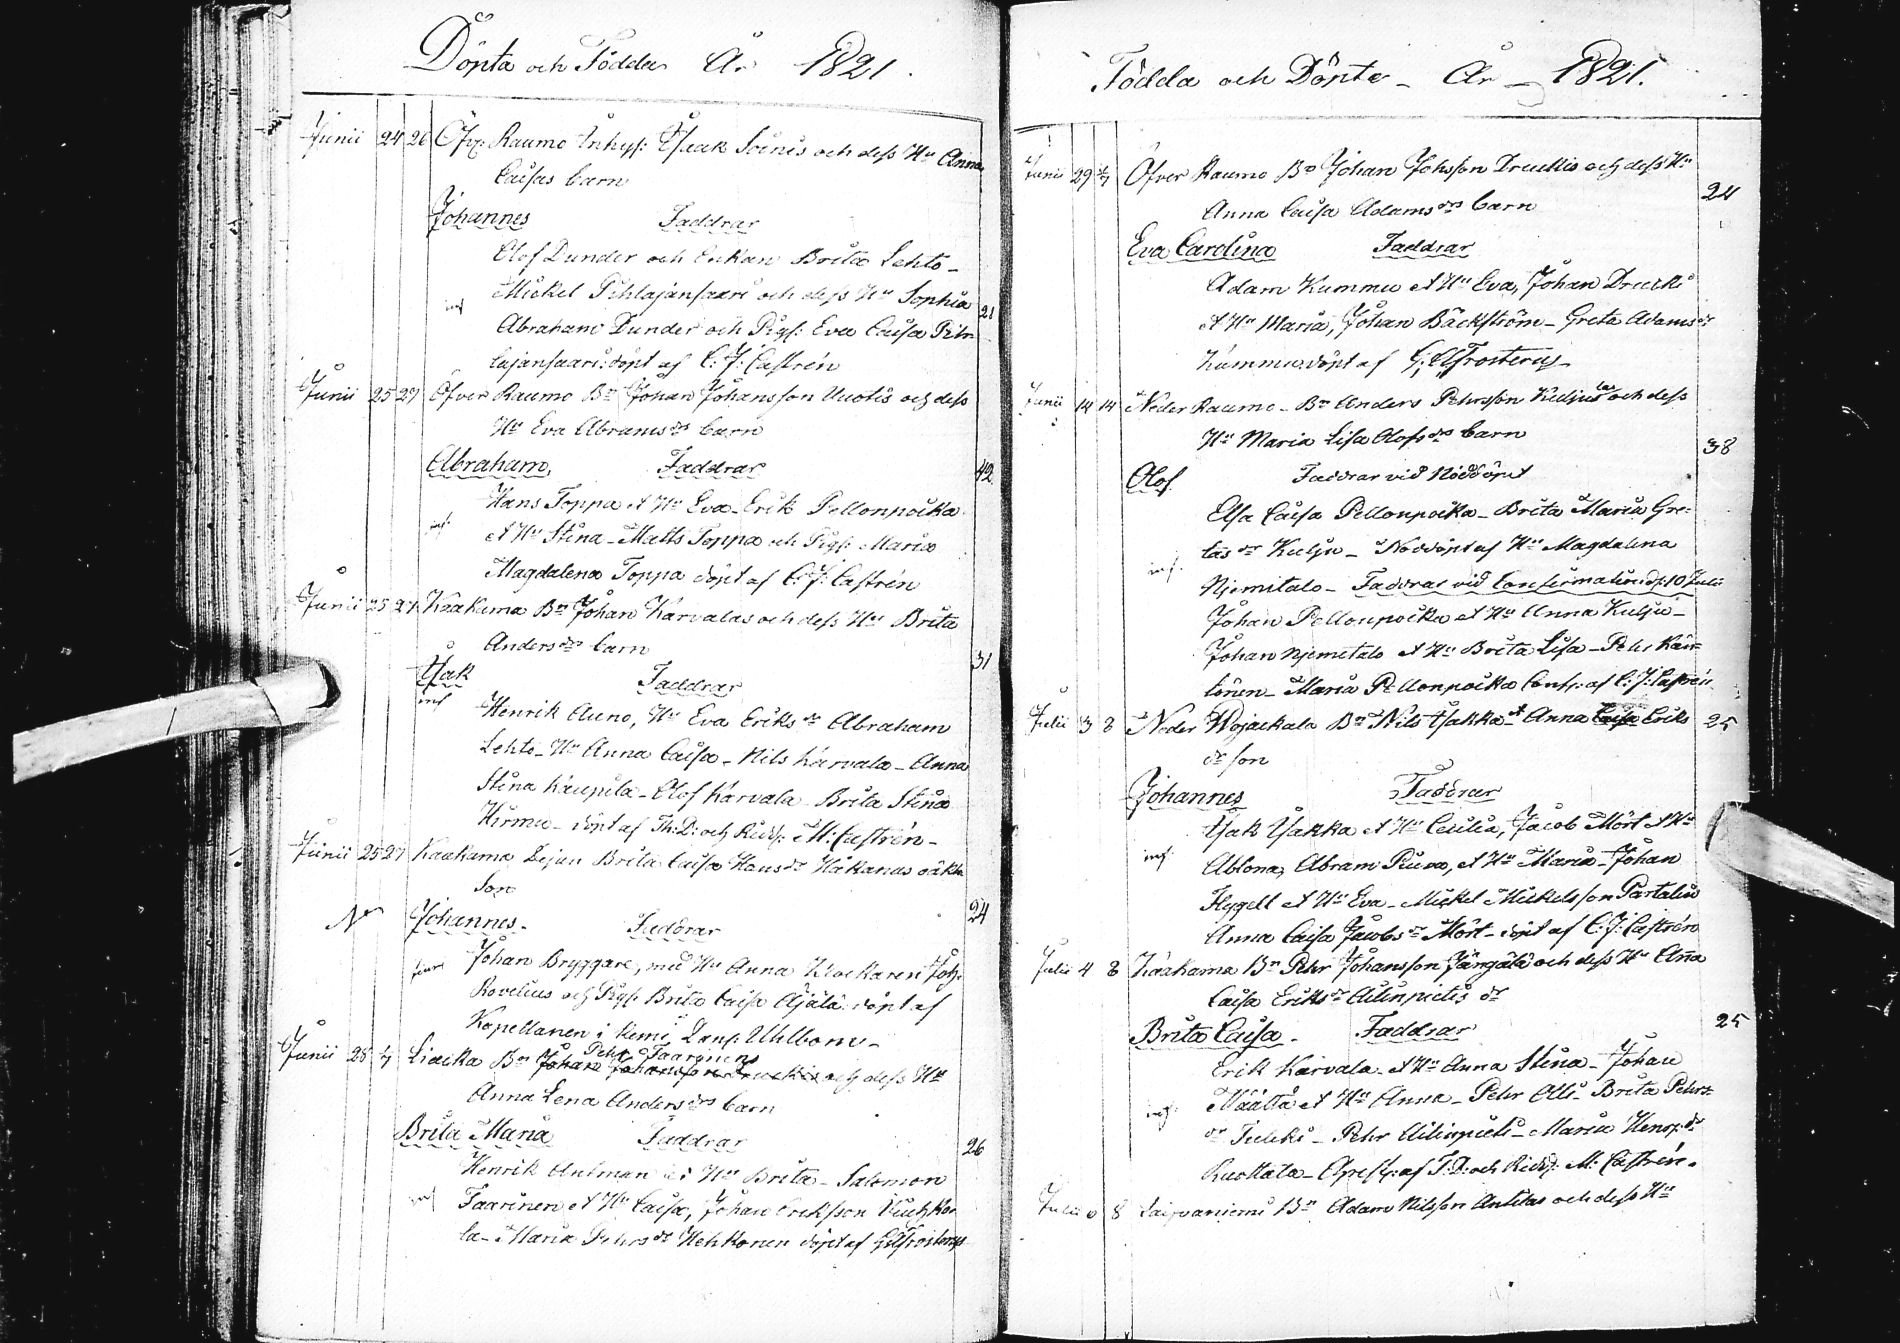 Döpta och Födda År 1821.
Junii 24 26 Öfv: Raumo Inhys: Isaak Soinis och dess Hu Anna
Caisas barn
Johannes Faddrar
Olof Dunder och Enkan Brita Lehto _
inf Mickel Pihlajansaari och dess Hu Sophia 21
Abraham Dunder och Pigs: Eva Caisa Pih=
lajansaari: döpt af C: J: Castrén
Junii 25 27 Öfver Raumo Bn Johan Johansson Uuotis och dess
Hu Eva Abramsdrs barn
Abraham, Faddrar 42
Hans Toppa et Hu Eva _ Erik Pellonpoika
inf. et Hu Stina _ Matts Toppa och Pigs: Maria
Magdalena Toppa döpt af C: J: Castrén
Junii 25 27 Kaakama Bn Johan Karvalas och dess Hu Brita
Andersdrs barn 31
Isak Faddrar
inf Henrik Auno, Hu Eva Eriks dr Abraham
Lehto _ Hu Anna Caisa _ Nils Karvala _ Anna
Stina Kaupila _ Olof Karvala Brita Stina
Hirmu _ döpt af Th: D: och Ridd: M: Castrén _
Junii 25 27 Kaakama Lejan Brita Caisa Hansdr Håkanas oäkta
Son
Johannes. Faddrar 24
Johan Bryggare, med Hu Anna Klockaren Joh:
Rovelius och Pigs: Brita Caisa Äjälä döpt af
Kapellanen i Kemi Uhlbom _
Junii 25 1/7 Liacka Bn Pehr Taarinens Johan Johansson Druckis och dess Hu
Anna Lena Andersdrs barn
Brita Maria Faddrar 26
Henrik Antman et Hu Brita _ Salomon
inf Taarinen et Hu Caisa, Johan Eriksson
la _ Maria Pehrs dr Hehkonen döpt af
Födda och Döpte _ År _ 1821.
Junii 29 1/7 Öfver Raumo Bn Johan Johsson Druckis och dess Hu 24
Anna Caisa Adamsdrs barn
Eva Carolina Faddrar
Adam Kummu et Hu Eva, Johan Drucki
et Hu Maria, Johan Bäckström _ Greta Adamsdr
Kummu döpt af G: A: Frosterus _
Junii 14 14 Neder Raumo _ Bn Anders Pehrsson Kuljus och dess
Hu Maria Lisa Olofsdrs barn 38
Olof Faddrar vid Nöddöpet
Elsa Caisa Pellonpoika _ Brita Maria Gre=
inf. las dr Kulju _ Nöddöpt af Hu Magdalena
Njemitalo _ Faddrar vid Confirmation d: 10 Julii
Johan Pellonpoika et Hu Anna Kulju _
Johan Njemitalo et Hu Brita Lisa _ Pehr Kän=
tönen _ Maria Pellonpoika Conf: af C: J: Castrén
Julii 3 8 Neder Wojackala Bn Nils Isakka et Anna Caisa Eriks 25
dr son
Johannes Faddrar
Isak Isakka et Hu Cecilia, Jacob Mört et Hu
inf. Ablona, Abram Piuva, et Hu Maria _ Johan
Flygell et Hu Eva _ Mickel Mickelsson Partalin
Anna Caisa Jacobsdr Mört _ döpt af C: J: Castrén
Julii 4 8 Kaakama Bn Pehr Johansson Jängälä och dess Hu Anna
Caisa Eriksdr Ailinpietis dr 25
Brita Caisa _ Faddrar
Erik Karvala _ et Hu Anna Stina _ Johan
inf. Määttä et Hu Anna _ Pehr Olli _ Brita Pehrs=
dr _ Pehr Ailinpieti _ Maria Henr: dr
Ruottala _ af T: D: och Ridd: M: Castrén.
Julii 6 8 Laivaniemi Bn Adam Nilsson Anttas och dess Hu